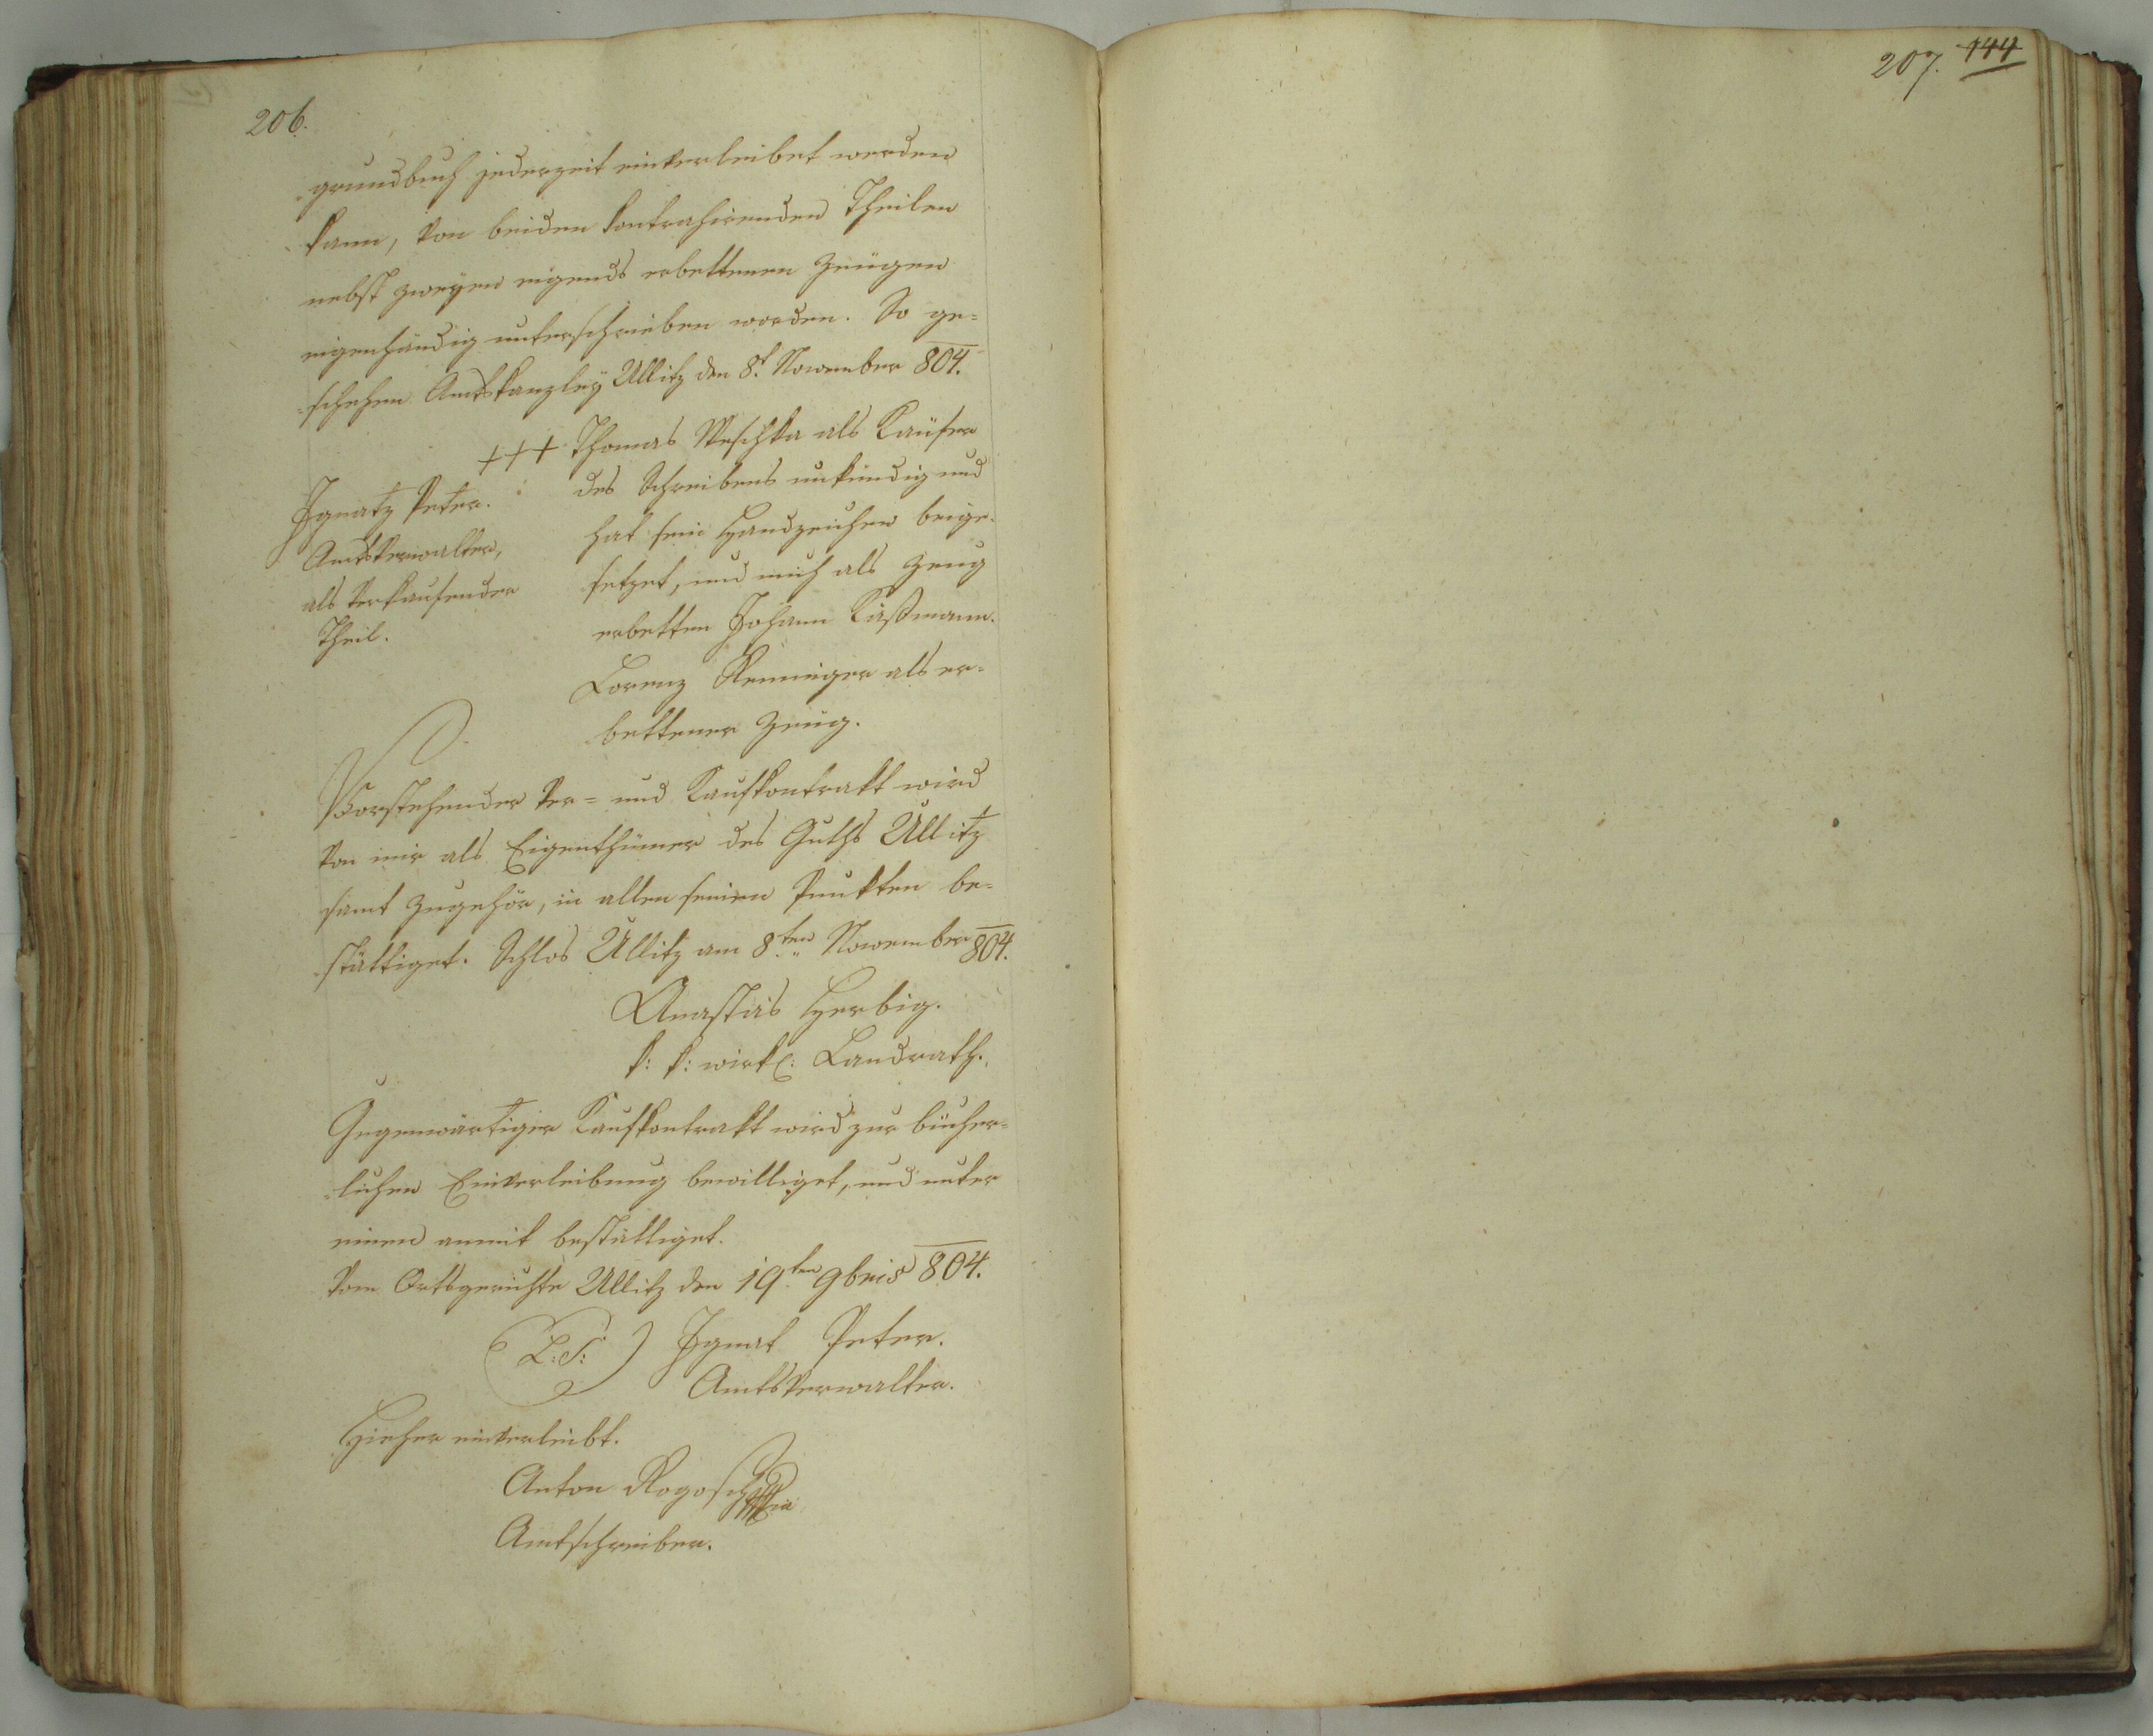 206.
grundbuch jederzeit einverleibet werden
kann, von beiden kontrahirenden Theilen
nebst zweyen eigends erbettenen Zeugen
eigenhändig unterschrieben worden. So ge=
=schehen Amtskanzley Ullitz den 8t. November 804.
+++ Thomas Weschka als Kaüfer
des Schreibens unkündig und
hat sein Handzeichen beige=
setzet, und mich als Zeug
erbetten Johann Kaßmann.
Lorenz Renninger als er=
bettener Zeug.
Ignatz Peter.
Amtsverwalter,
als verkaufender
Theil.
Vorstehender Ver= und Kaufkontrakt wird
von mir als Eigenthümer des Guths Ullitz
samt Zugehör, in allen seinen Punkten be=
stättiget. Schlos Ullitz am 8ten November 804.
Anastas Herbig.
k: k: wirkl: Landrath.
Gegenwärtiger Kaufkontrakt wird zur bücher=
=lichen Einverleibung bewilliget, und unter
einen anmit bestättiget.
Vom Ortsgerichte Ullitz den 19ten 9bris 804.
(L: S:) Ignat Peter.
Amtsverwalter.
Hieher einverleibt.
Anton
Amtschreiber.
207. 144